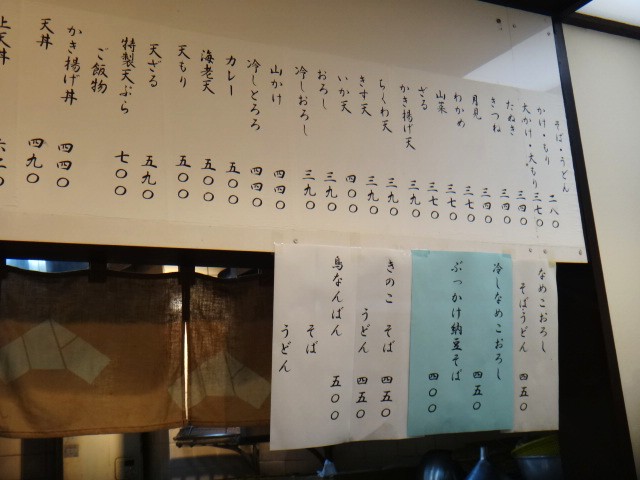 そば・うどん
かけ・もり 二八〇
大かけ・大もり 三七〇
たぬき 三四〇
きつね 三四〇
月見 三四〇
わかめ 三七〇
山菜 三七〇
ざる 三七〇
かき揚げ天 三九〇
ちくわ天 三九〇
きす天 三九〇
いか天 四〇〇
おろし 三九〇
冷しおろし 三九〇
山かけ 四四〇
冷しとろろ 四四〇
カレー 五〇〇
海老天 五〇〇
天もり 五〇〇
天ざる 五九〇
特製天ぷら 七〇〇
ご飯物
かき揚げ丼 四四〇
天丼 四九〇
上天丼 六二〇
なめこおろし
そばうどん 四五〇
冷しなめこおろし 四五〇
ぶっかけ納豆そば 四〇〇
きのこ そば 四五〇
うどん 四五〇
鳥なんばん 五〇〇
そば
うどん